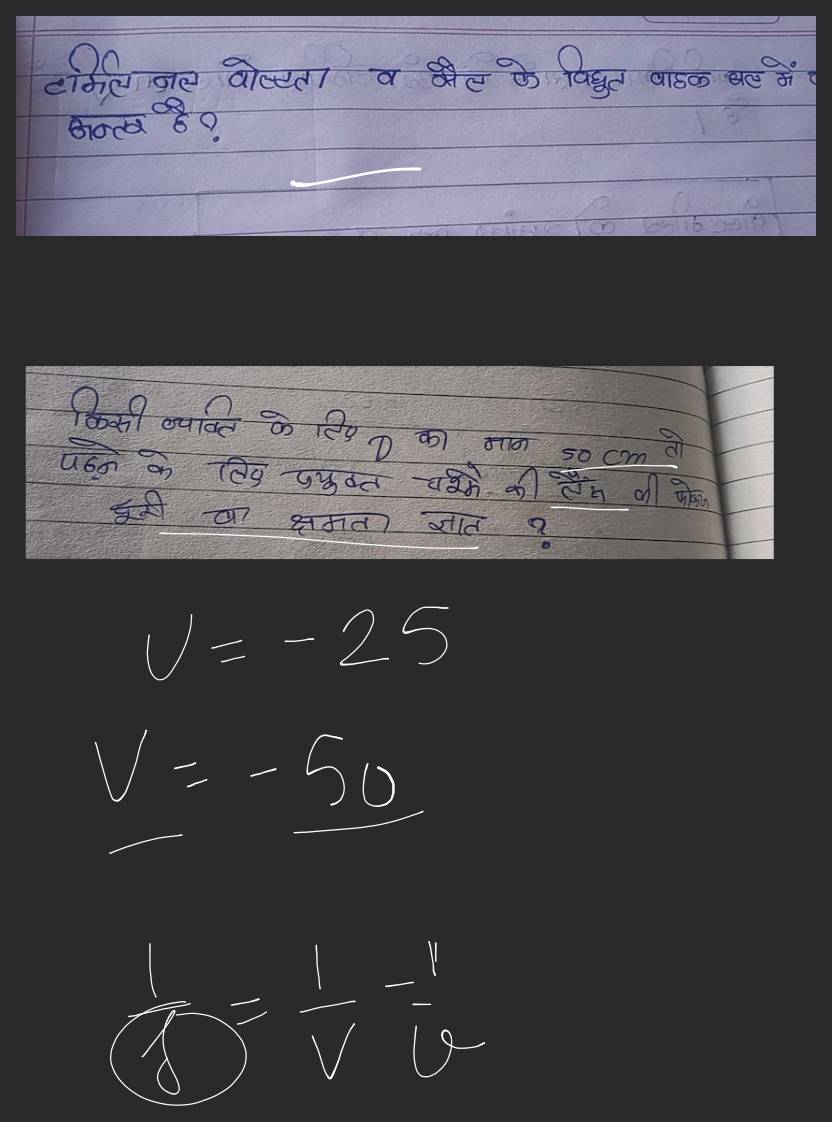 टर्मिल जल वोल्टता व सैल के विधुत वाहक बल में
अन्तर है?
किसी व्यक्ति के लिए D का मान 50 cm तो
पढ़ने के लिए प्रयुक्त चश्मे की लैंस की फोकस
दूरी व क्षमता ज्ञात ?
U = - 25
V = - 50
1/f = 1/V - 1/U